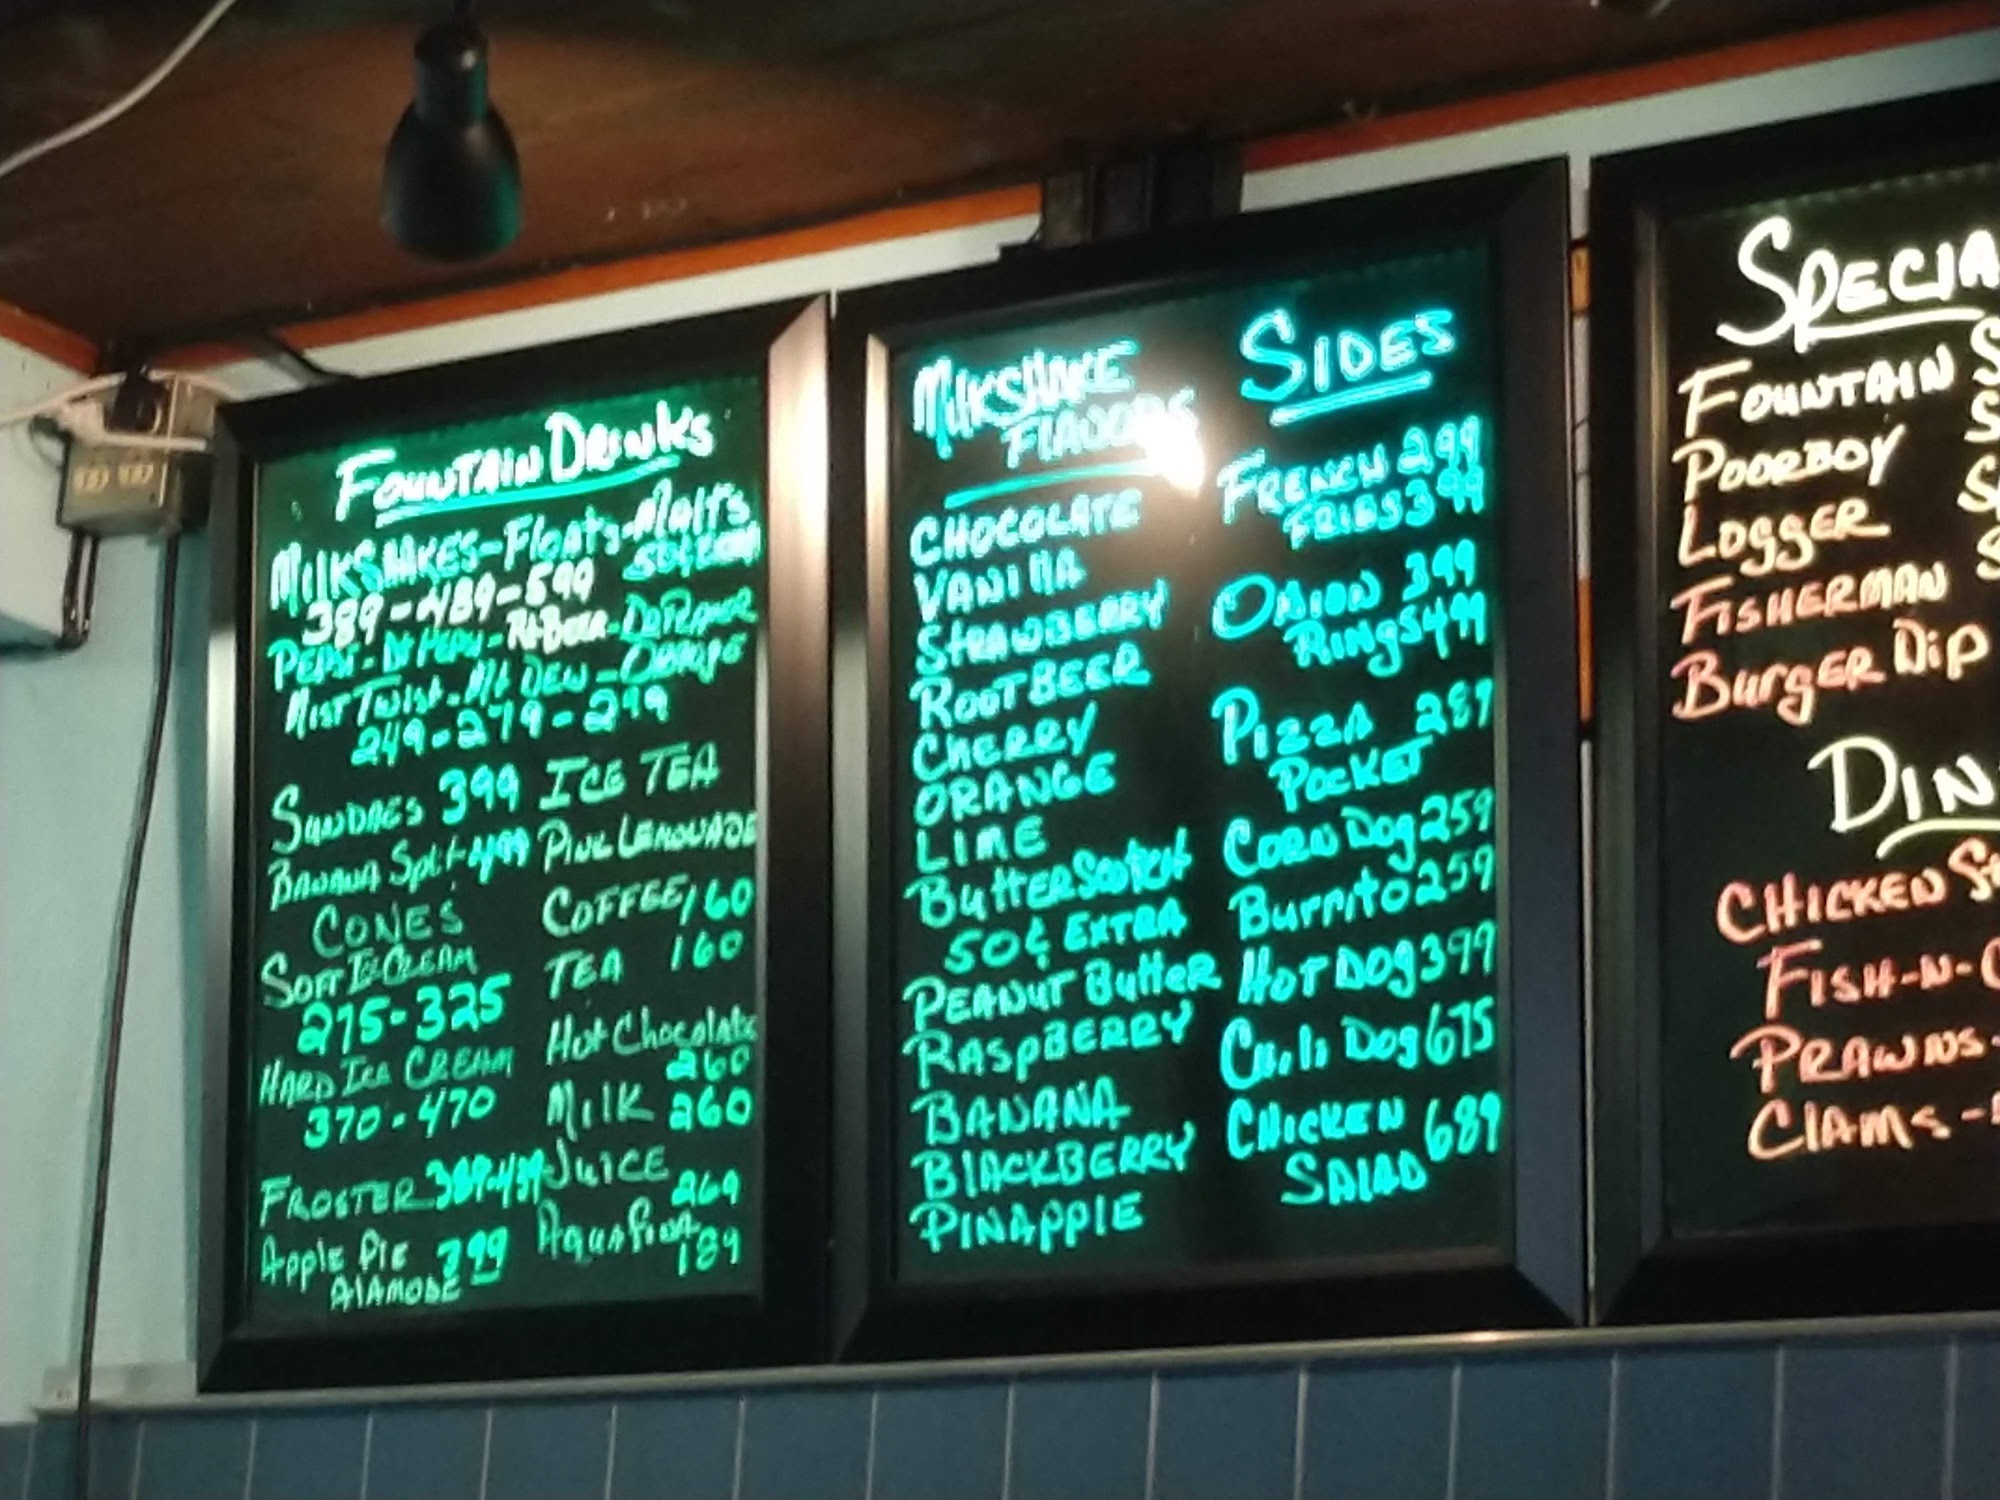 Fountain Drinks
MilkSHAKES-Floats-Malts
389-489-599
PEPSI-Dt PEPSI-Rt Beer-Dr PEPPER
Mist Twist-Mt Dew-Orange
249-279-299
SUNDAES 399
BANANA Split-499
CONES
Soft Ice CREAM
275-325
HARD Ice CREAM
370-470
FROSTER 389-439
Apple PiE 399
AlAMODE
ICE TEA
Pink LEMONADE
COFFEE 160
TEA 160
Hot Chocolate
260
Milk 260
JUICE
269
AquaFina
189
MilkSHAKE
FlAVORS
CHOCOLATE
VANillA
STRAWBERRY
ROOTBEER
CHERRY
ORANGE
LIME
ButtERScotcH
50¢ EXTRA
PEANUT ButtEr
RASpBERRY
BANANA
BlACKBERRY
PINAppLE
SIDES
FRENCH 299
FRIES 399
ONION 399
Rings 499
PIZZA 289
POCKET
CORN Dog 259
Burrito 259
HOT DOg 399
CHili Dog 675
CHICKEN 689
SAlAD
SPECIA
FOUNTAIN S
POORBOY S
LoggER S
FISHERMAN S
BurgER Dip
DIN
CHICKEN S
FISH-N-C
PRAWNS-
ClAMS-